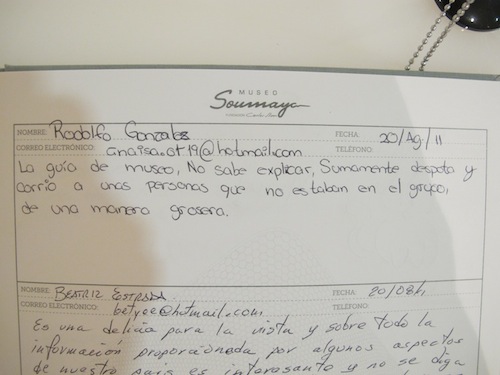 MUSEO
Soumaya
NOMBRE: Rodolfo Gonzales FECHA: 20/Ag/11
CORREO ELECTRÓNICO: anaisa.6t19@hotmail.com TELÉFONO:
La guía de museo, No sabe explicar, Sumamente despota y
corrio a unas personas que no estaban en el grupo,
de una manera grosera.
NOMBRE: BEATRIZ ESTRADA FECHA: 20/08/11
CORREO ELECTRÓNICO: betyee@hotmail.com TELÉFONO:
Es una delicia para la vista y sobre todo la
información proporcionada por algunos aspectos
de nuestro país es interesante y no se diga